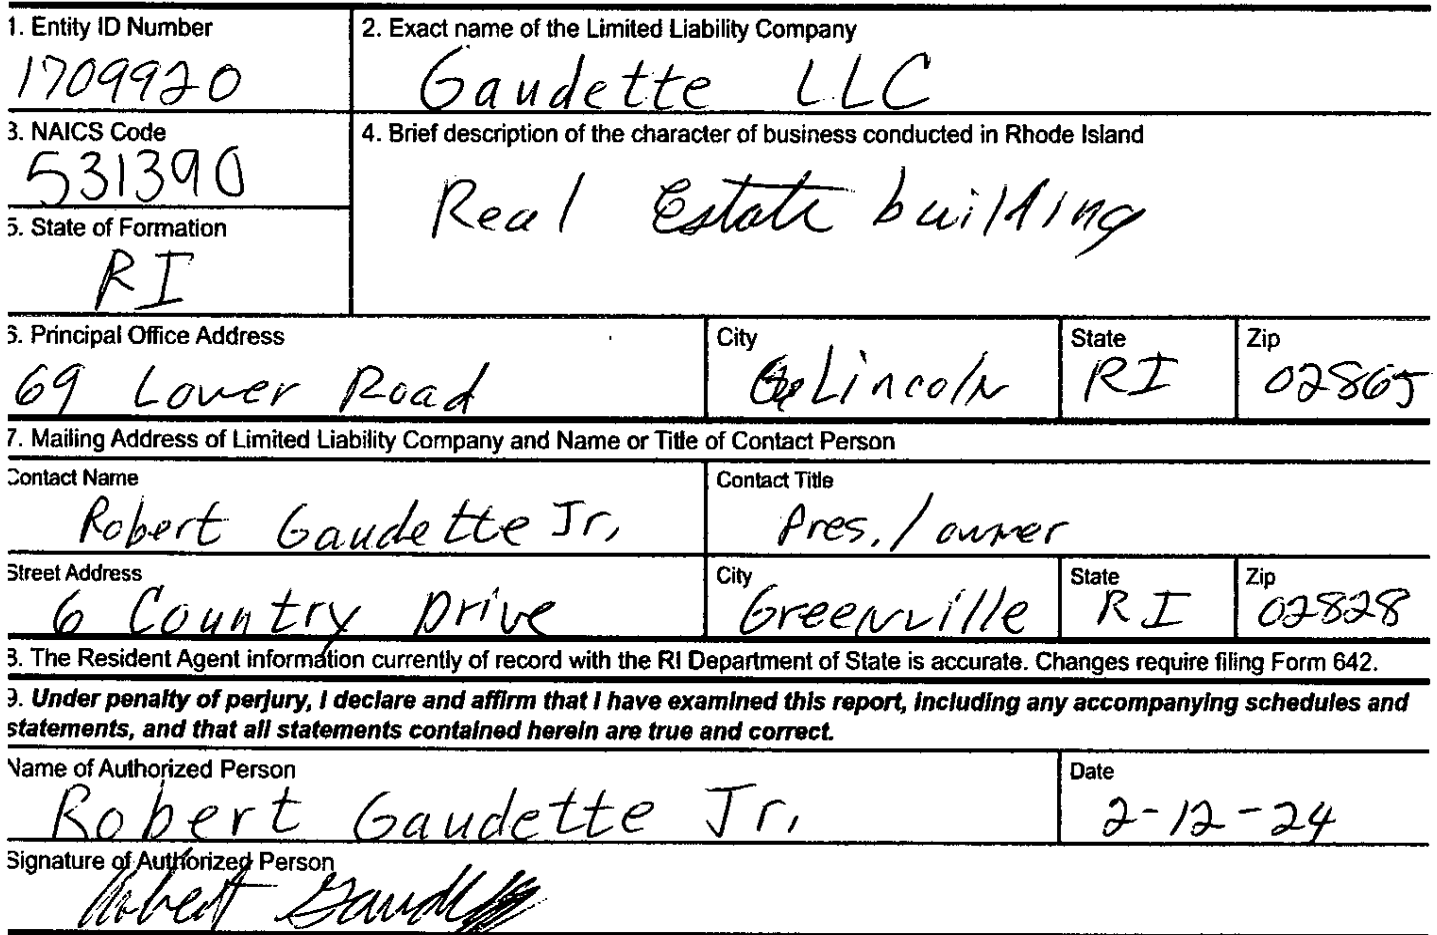 1. Entity ID Number 2. Exact name of the Limited Liability Company
1709920 Gaudette LLC
3. NAICS Code 4. Brief description of the character of business conducted in Rhode Island
531390 Real Estate building
5. State of Formation
RI
6. Principal Office Address City State Zip
69 Lower Road Lincoln RI 02865
7. Mailing Address of Limited Liability Company and Name or Title of Contact Person
Contact Name Contact Title
Robert Gaudette Jr, Pres. / owner
Street Address City State Zip
6 Country Drive Greenville RI 02828
8. The Resident Agent information currently of record with the RI Department of State is accurate. Changes require filing Form 642.
9. Under penalty of perjury, I declare and affirm that I have examined this report, including any accompanying schedules and
statements, and that all statements contained herein are true and correct.
Name of Authorized Person Date
Robert Gaudette Jr, 2-12-24
Signature of Authorized Person
Robert